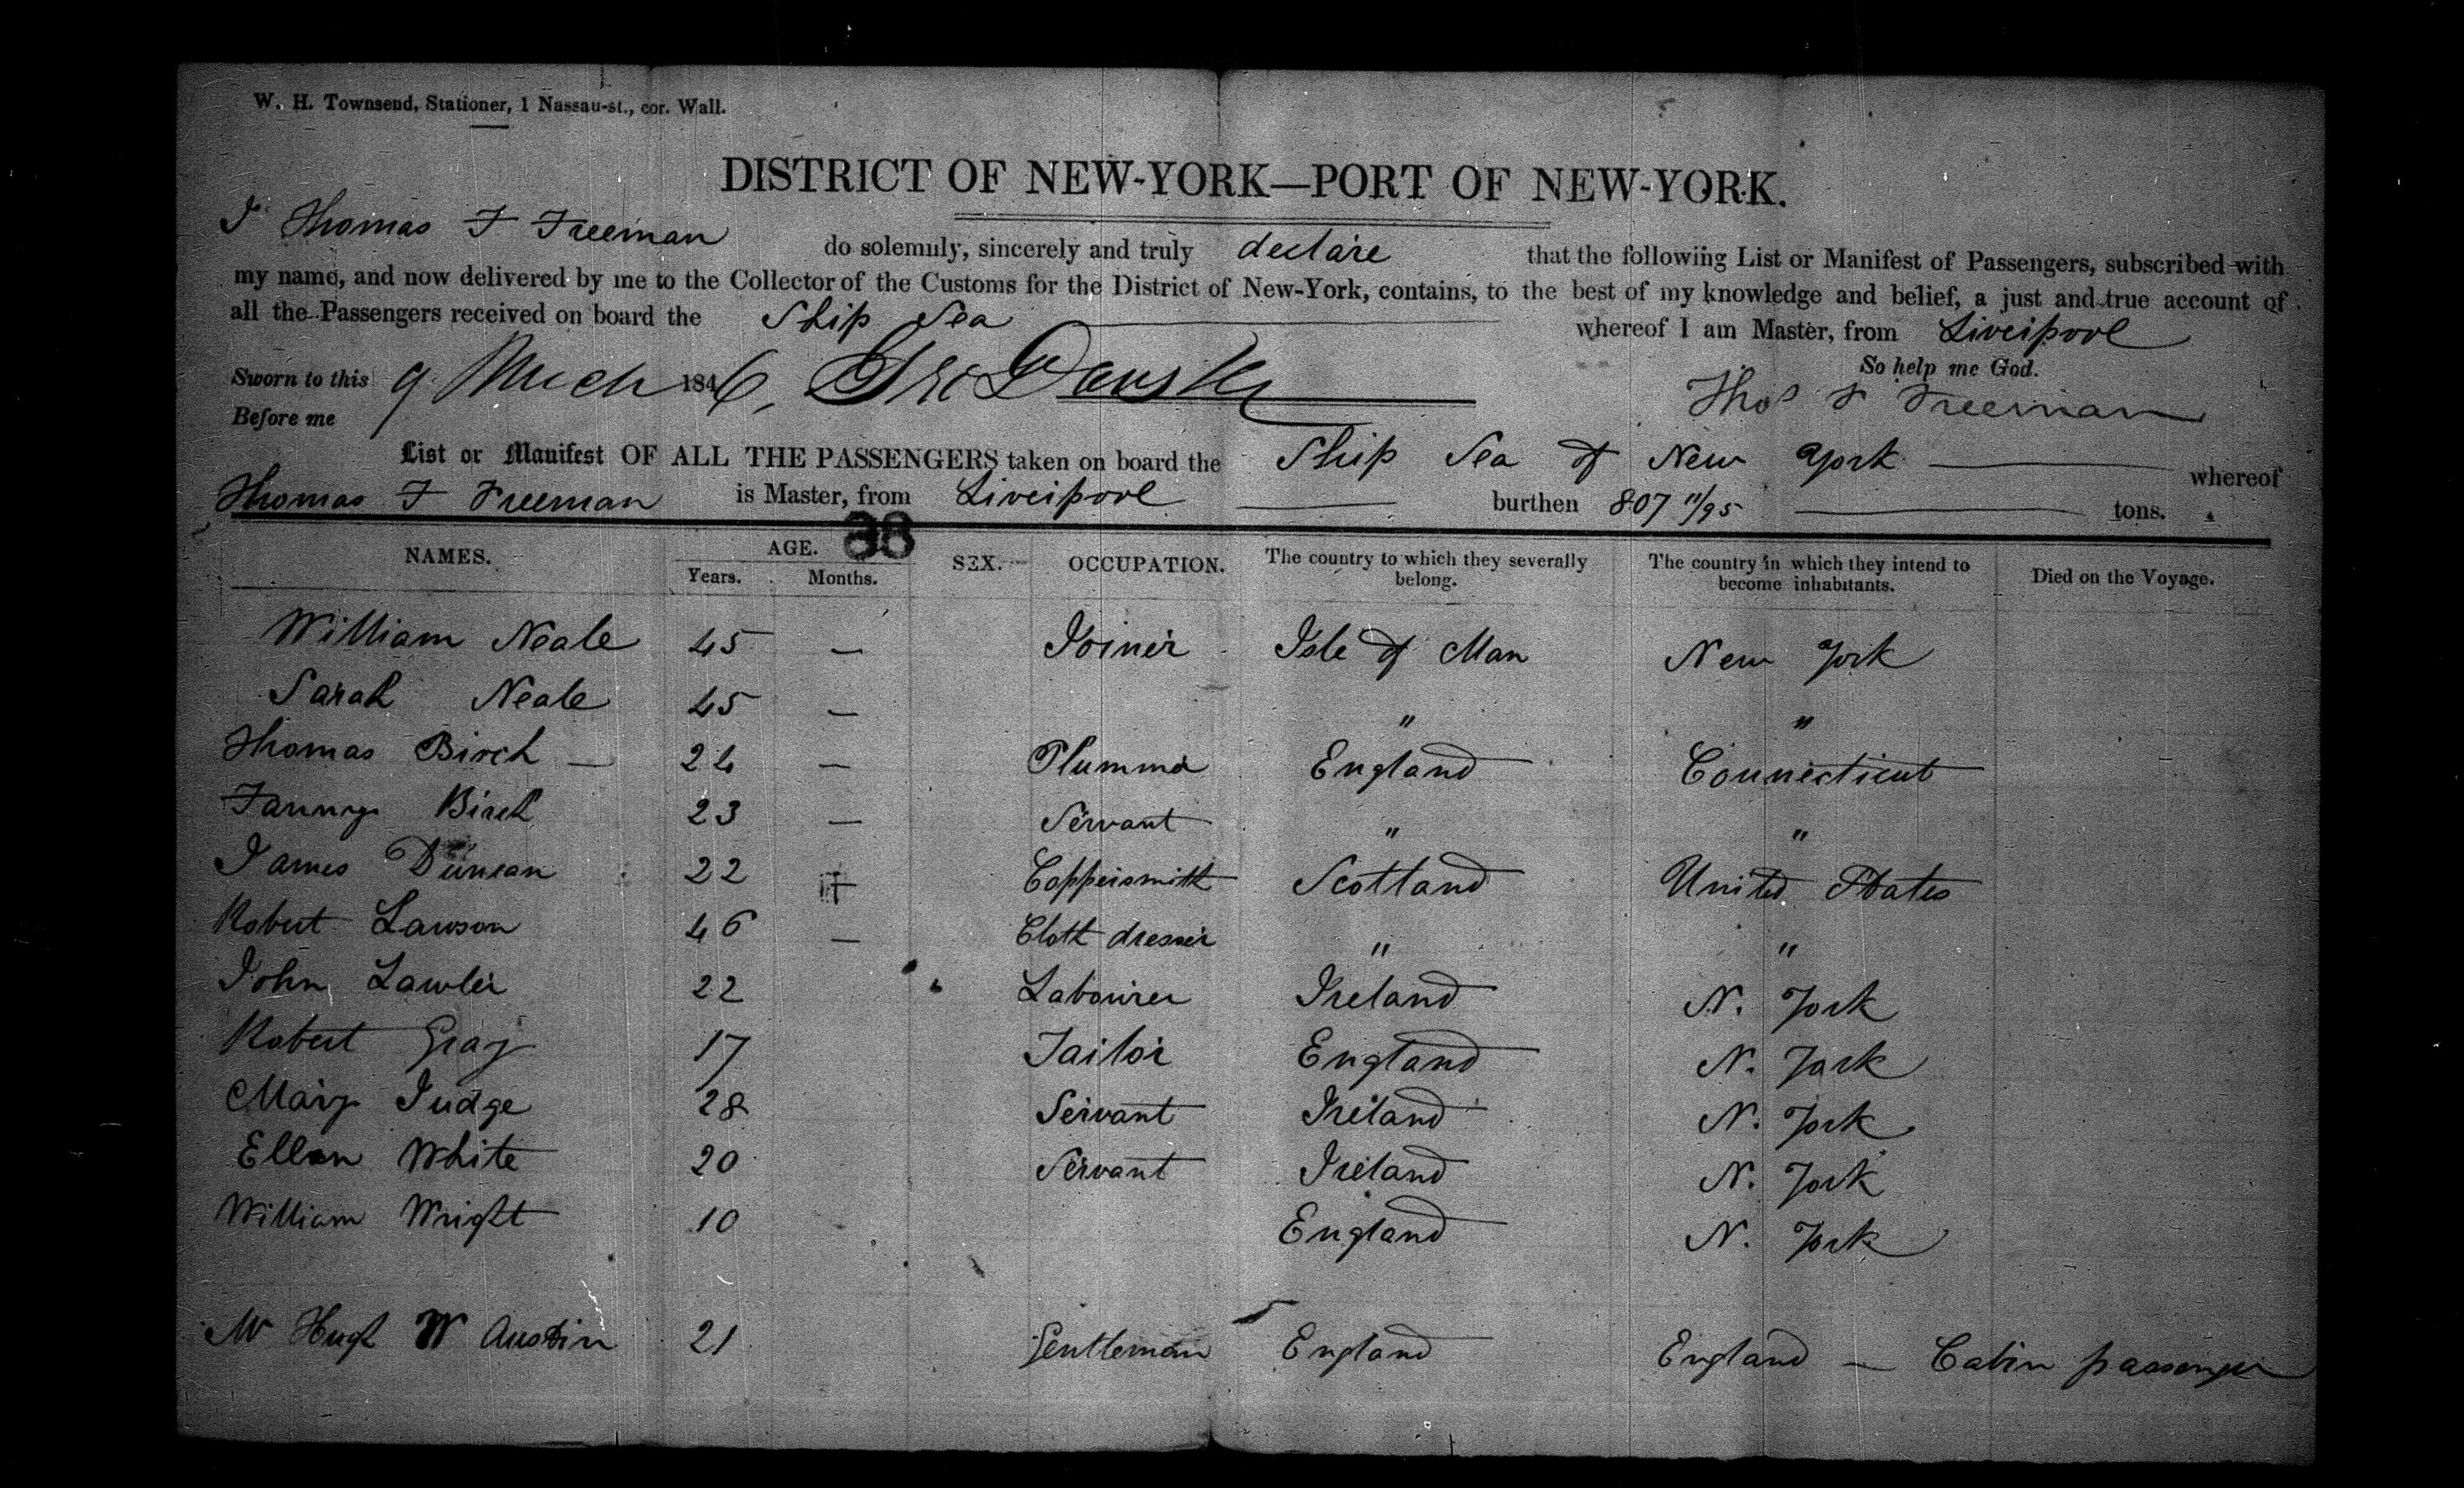 W. H. Townsend, Stationer, 1 Nassau-st., cor. Wall.
DISTRICT OF NEW-YORK—PORT OF NEW-YORK.
I Thomas F Freeman do solemnly, sincerely and truly declare that the following List or Manifest of Passengers, subscribed with
my name, and now delivered by me to the Collector of the Customs for the District of New-York, contains, to the best of my knowledge and belief, a just and true account of
all the Passengers received on board the Ship Sea whereof I am Master, from Liverpool
So help me God.
Sworn to this 9 March 1846,
Before me
Thos F Freeman
List or Manifest OF ALL THE PASSENGERS taken on board the Ship Sea of New York whereof
Thomas F Freeman is Master, from Liverpool burthen 807 11/95 tons.
38
NAMES. AGE. SEX. OCCUPATION. The country to which they severally belong. The country in which they intend to become inhabitants. Died on the Voyage.
Years. Months.
William Neale 45 — Joiner Isle of Man New York
Sarah Neale 45 — " "
Thomas Birch — 24 — Plummer England Connecticut
Fanny Birch 23 — Servant " "
James Duncan 22 Coppersmith Scotland United States
Robert Lawson 46 — Cloth dresser " "
John Lawler 22 Labourer Ireland N. York
Robert Gray 17 Tailor England N. York
Mary Judge 28 Servant Ireland N. York
Ellen White 20 Servant Ireland N. York
William Wright 10 England N. York
Mr Hugh W Austin 21 Gentleman England England — Cabin passenger